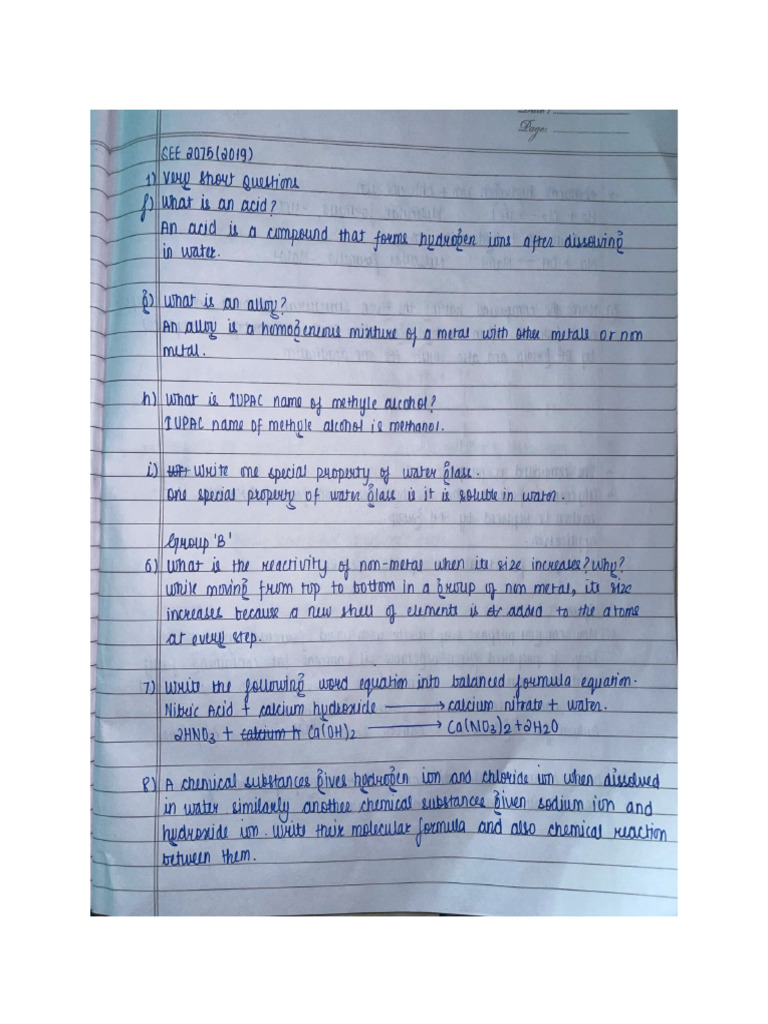 Date:
Page:
SEE 2075(2019)
1) Very Short Questions
f) What is an acid?
An acid is a compound that forms hydrogen ions after dissolving
in water.
g) What is an alloy?
An alloy is a homogeneous mixture of a metal with other metals or non
metal.
h) What is IUPAC name of methyle alcohol?
IUPAC name of methyle alcohol is methanol.
i) Write one special property of water glass.
One special property of water glass is it is soluble in water.
Group 'B'
6) What is the reactivity of non-metal when its size increases? Why?
While moving from top to bottom in a group of non metal, its size
increases because a new shell of elements is added to the atoms
at every step.
7) Write the following word equation into balanced formula equation.
Nitric Acid + calcium hydroxide ⟶ calcium nitrate + water.
2HNO3 + calcium h Ca(OH)2 ⟶ Ca(NO3)2+2H2O
8) A chemical substances gives hydrogen ion and chloride ion when dissolved
in water similarly another chemical substances given sodium ion and
hydroxide ion. Write their molecular formula and also chemical reaction
between them.